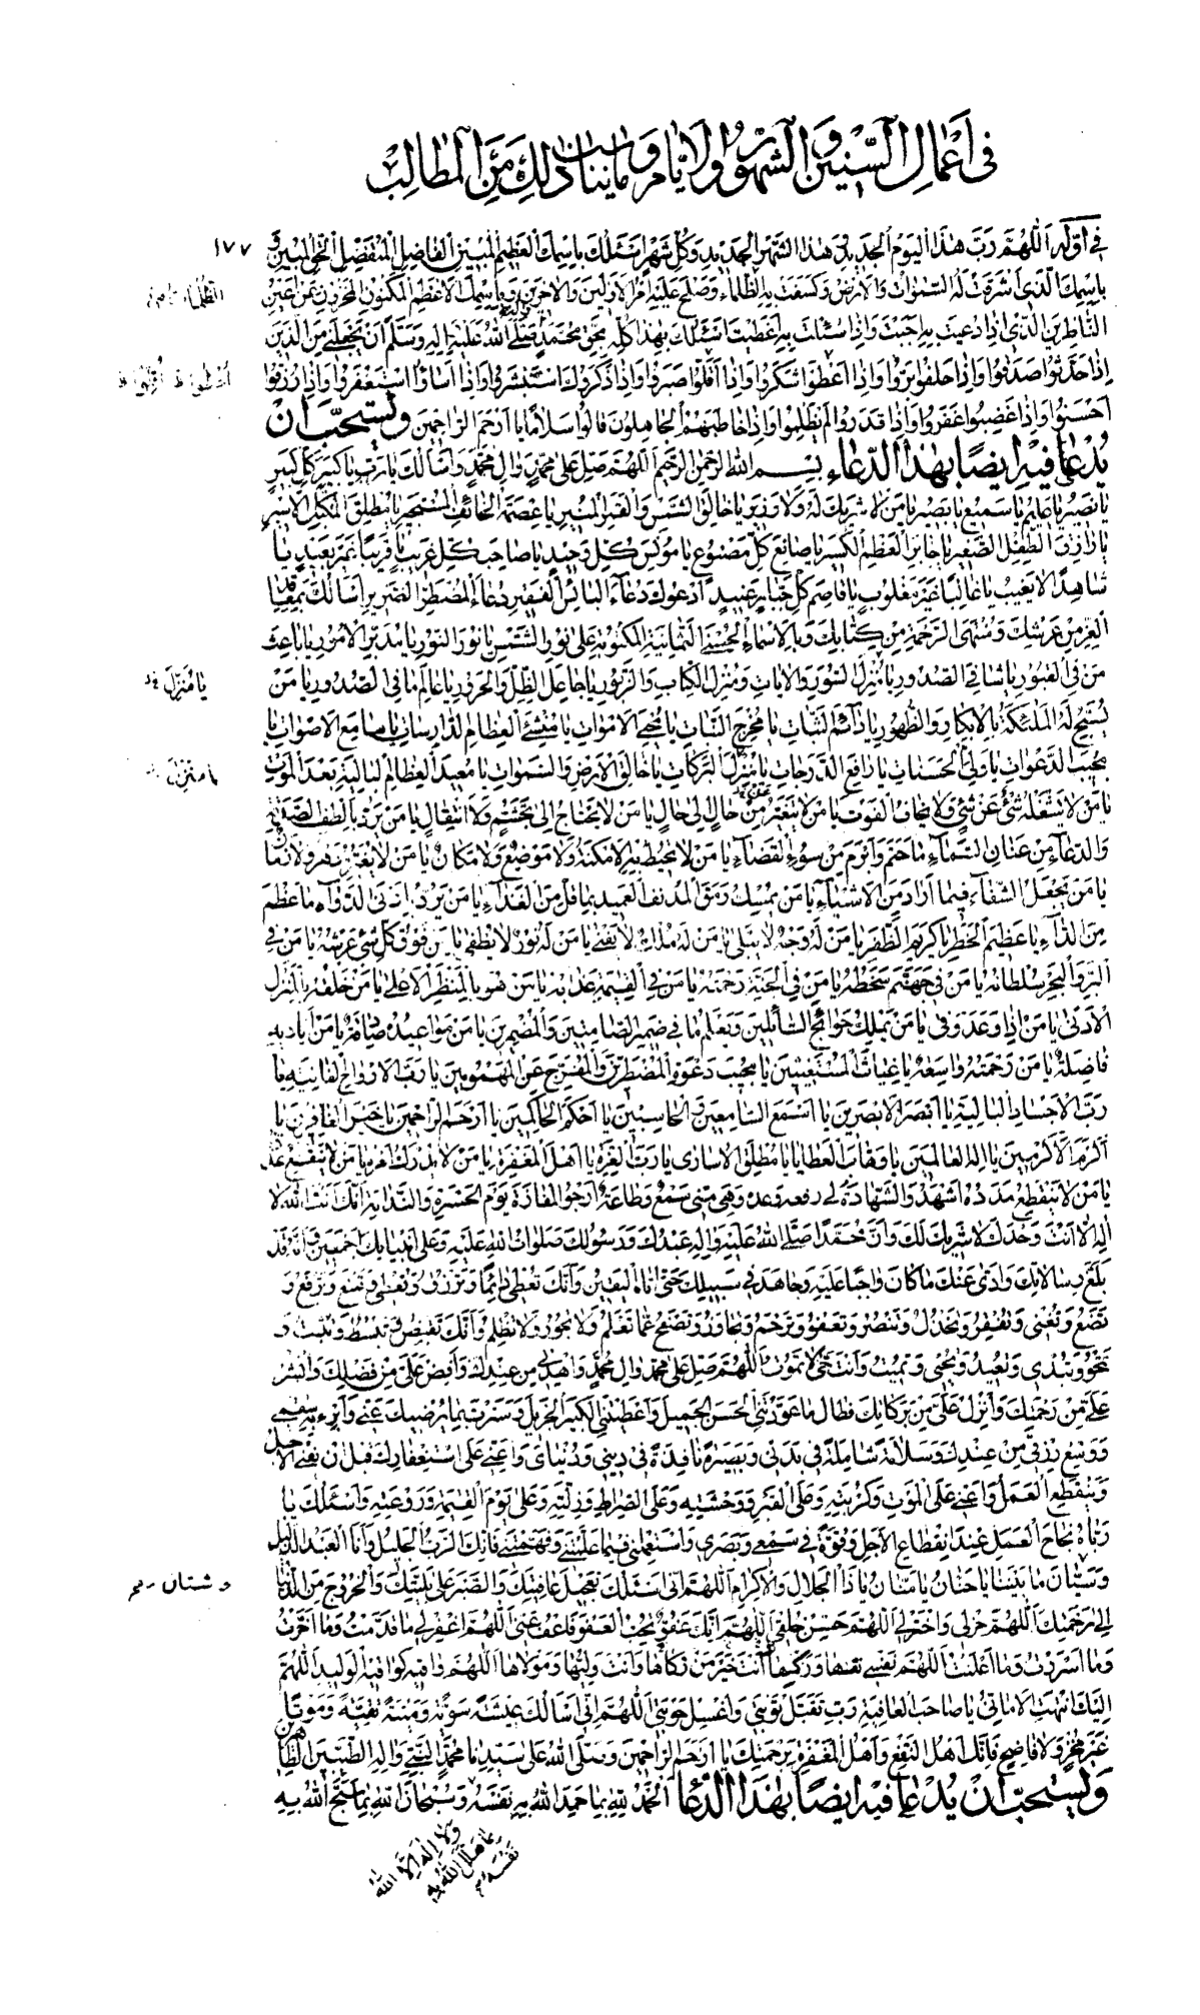 في أعمال السنين والشهور والأيام وما يناسب ذلك من المطالب
١٧٧
في أوله اللهم رب هذا اليوم الجديد في هذا الشهر الجديد وكل شهر اسئلك باسمك العظيم المبين الفاضل المتفضل الحق المبين و
باسمك الذي اشرقت له السموات والارض وكسفت به الظلماء وصلح عليه امر الاولين والاخرين وباسمك الاعظم المكنون المخزون عن اعين
الناظرين الذي اذا دعيت به اجبت واذا سئلت به اعطيت اسئلك بهذا كله بحق محمد صلى الله عليه واله وسلم ان تجعلني من الذين
اذا حدثوا صدقوا واذا حلفوا بروا واذا اعطوا شكروا واذا اقلوا صبروا واذا ذكروك استبشروا واذا اساؤا استغفروا واذا رزقوا
احسنوا واذا غضبوا غفروا واذا قدروا لم يظلموا واذا خاطبهم الجاهلون قالوا سلاما يا ارحم الراحمين ويستحب ان
يدعا فيه ايضا بهذا الدعاء بسم الله الرحمن الرحيم اللهم صل على محمد وال محمد واسالك يا رب يا كبير كل كبير
يا نصير يا عليم يا سميع يا بصير يا من لا شريك له ولا وزير يا خالق الشمس والقمر المنير يا عصمة الخائف المستجير يا مطلق المكبل الاسير
يا رازق الطفل الصغير يا جابر العظم الكسير يا صانع كل مصنوع يا مونس كل وحيد يا صاحب كل غريب يا قريبا غير بعيد يا
شاهدا لا يغيب يا غالبا غير مغلوب يا قاصم كل جبار عنيد ادعوك دعاء البائس الفقير دعاء المضطر الضرير اسالك بمعاقد
العز من عرشك ومنتهى الرحمة من كتابك وبالاسماء الحسنى الثمانية المكتوبة على نور الشمس يا نور النور يا مدبر الامور يا باعث
من في القبور يا شافي الصدور يا منزل السور والايات ومنزل الكتاب والزبور يا جاعل الظل والحرور يا عالم ما في الصدور يا من
يسبح له الملئكة بالابكار والظهور يا دائم الثبات يا مخرج النبات يا محيي الاموات يا منشئ العظام الدارسات يا سامع الاصوات يا
مجيب الدعوات يا ولي الحسنات يا رافع الدرجات يا منزل البركات يا خالق الارض والسموات يا معيد العظام البالية بعد الموت
يا من لا يشغله شئ عن شئ ولا يخاف الفوت يا من لا يتغير من حال الى حال يا من لا يحتاج الى تجشم ولا انتقال يا من يرد بالطف الصدقة
والدعاء من عنان السماء ما حتم وابرم من سوء القضاء يا من لا يحيط به الامكنة ولا موضع ولا مكان يا من لا يغيره دهر ولا زمان
يا من يجعل الشفاء فيما اراد من الاشياء يا من يمسك رمق المدنف العميد بما قل من الغذاء يا من يرد بادنى الدواء ما عظم
من الداء يا عظيم الخطر يا كريم الظفر يا من له وجه لا يبلى يا من له ملك لا يفنى يا من له نور لا يطفى يا من فوق كل شئ عرشه يا من في
البر والبحر سلطانه يا من في جهنم سخطه يا من في الجنة رحمته يا من في القيمة عذابه يا من هو بالمنظر الاعلى يا من خلقه بالمنزل
الادنى يا من اذا وعد وفى يا من يملك حوائج السائلين ويعلم ما في ضمير الصامتين والمضمرين يا من مواعيده صادقة يا من اياديه
فاضلة يا من رحمته واسعة يا غياث المستغيثين يا مجيب دعوة المضطرين والمفرج عن المهمومين يا رب الارواح الفانية يا
رب الاجساد البالية يا ابصر الابصرين يا اسمع السامعين والحاسبين يا احكم الحاكمين يا ارحم الراحمين يا خير الغافرين يا
اكرم الاكرمين يا اله العالمين يا وهاب العطايا يا مطلق الاسارى يا رب العزة يا اهل المغفرة يا من لا يدرك امره يا من لا ينقطع عدده
يا من لا ينقطع مدده اشهد والشهادة لي رفعة وعدة وهي مني سمع وطاعة ارجو المفازة يوم الحسرة والندامة انك انت الله لا
اله الا انت وحدك لا شريك لك وان محمدا صلى الله عليه واله عبدك ورسولك صلوات الله عليه وعلى انبيائك اجمعين وانه قد
بلغ رسالاتك وادى عنك ما كان واجبا عليه وجاهد في سبيلك حتى اتاه اليقين وانك تعطي دائما وترزق وتعطى وتمنع وترفع و
تضع وتغني وتفقر وتخذل وتنصر وتعفو وترحم وتجاوز وتصفح عما تعلم ولا تجور ولا تظلم وانك تقبض وتبسط وتثبت و
تمحو وتبدئ وتعيد وتحيي وتميت وانت حي لا تموت اللهم صل على محمد وال محمد واهدني من عندك وافض علي من فضلك وانشر
علي من رحمتك وانزل علي من بركاتك فطال ما عودتني الحسن الجميل واعطيتني الكثير الجزيل وسترت
ووسع رزقي من عندك وسلامة شاملة في بدني وبصيرة نافذة في ديني ودنياي واعني على استغفارك قبل ان يفنى الاجل
وينقطع العمل واعني على الموت وكربته وعلى القبر ووحشته وعلى الصراط وزلته وعلى يوم القيمة وروعته واسئلك يا
رباه نجاح العمل عند انقطاع الاجل وقوة في سمعي وبصري واستعملني فيما علمتني وفهمتني فانك الرب الجليل وانا العبد الذليل
وشتان ما بيننا يا حنان يا منان يا ذا الجلال والاكرام اللهم اني اسئلك تعجيل عافيتك والصبر على بليتك والخروج من الدنيا
الى رحمتك اللهم خر لي واختر لي اللهم حسن خلقي اللهم انك عفو تحب العفو فاعف عني اللهم اغفر لي ما قدمت وما اخرت
وما اسررت وما اعلنت اللهم نفسي نقها وزكيها انت خير من زكاها وانت وليها ومولاها اللهم واقية كواقية الوليد اللهم
اليك انتهت الاماني يا صاحب العافية رب تقبل توبتي واغسل حوبتي اللهم اني اسالك عيشة سوية وميتة نقية وموتا
غير مخز ولا فاضح فانك اهل التقوى واهل المغفرة برحمتك يا ارحم الراحمين وصلى الله على سيدنا محمد النبي واله الطيبين الطاهرين
ويستحب ان يدعا فيه ايضا بهذا الدعا الحمد لله بما حمد الله به نفسه وسبحان الله بما سبح الله به
نفسه ولا اله الا الله بما هلل الله به نفسه
يا منزل
يا منزل
وشتان